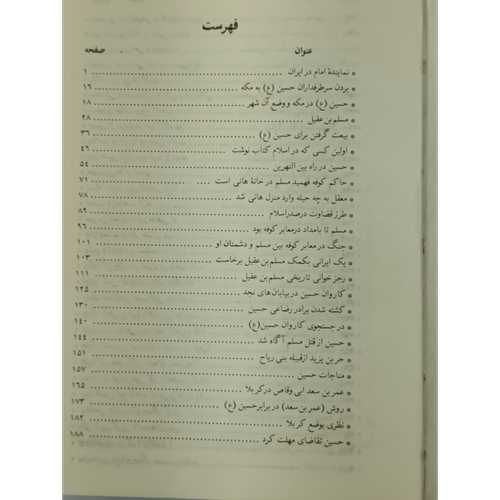 فهرست
عنوان صفحه
* نمایندهٔ امام در ایران ۱
* بردن سرطرفداران حسین (ع) به مکه ۱۶
* حسین (ع) در مکه و وضع آن شهر ۱۸
* مسلم بن عقیل ۲۸
* بیعت گرفتن برای حسین (ع) ۳۶
* اولین کسی که در اسلام کتاب نوشت ۴۶
* حسین در راه بین النهرین ۵۴
* حاکم کوفه فهمید مسلم در خانهٔ هانی است ۷۱
* معقل به چه حیله وارد منزل هانی شد ۷۸
* طرز قضاوت درصدراسلام ۸۹
* مسلم تا بامداد درمعابر کوفه بود ۹۶
* جنگ در معابر کوفه بین مسلم و دشمنان او ۱۰۱
* یک ایرانی بکمک مسلم بن عقیل برخاست ۱۰۳
* رجز خوانی تاریخی مسلم بن عقیل ۱۱۱
* کاروان حسین در بیابان های نجد ۱۲۵
* کشته شدن برادر رضاعی حسین ۱۳۰
* در جستجوی کاروان حسین (ع) ۱۴۰
* حسین از قتل مسلم آگاه شد ۱۴۴
* حر بن یزید ازقبیله بنی ریاح ۱۵۱
* مناجات حسین ۱۵۷
* عمر بن سعد ابی وقاص درکربلا ۱۶۵
* روش (عمر بن سعد) در برابر حسین (ع) ۱۷۳
* نظری بوضع کربلا ۱۸۲
* حسین تقاضای مهلت کرد ۱۸۸